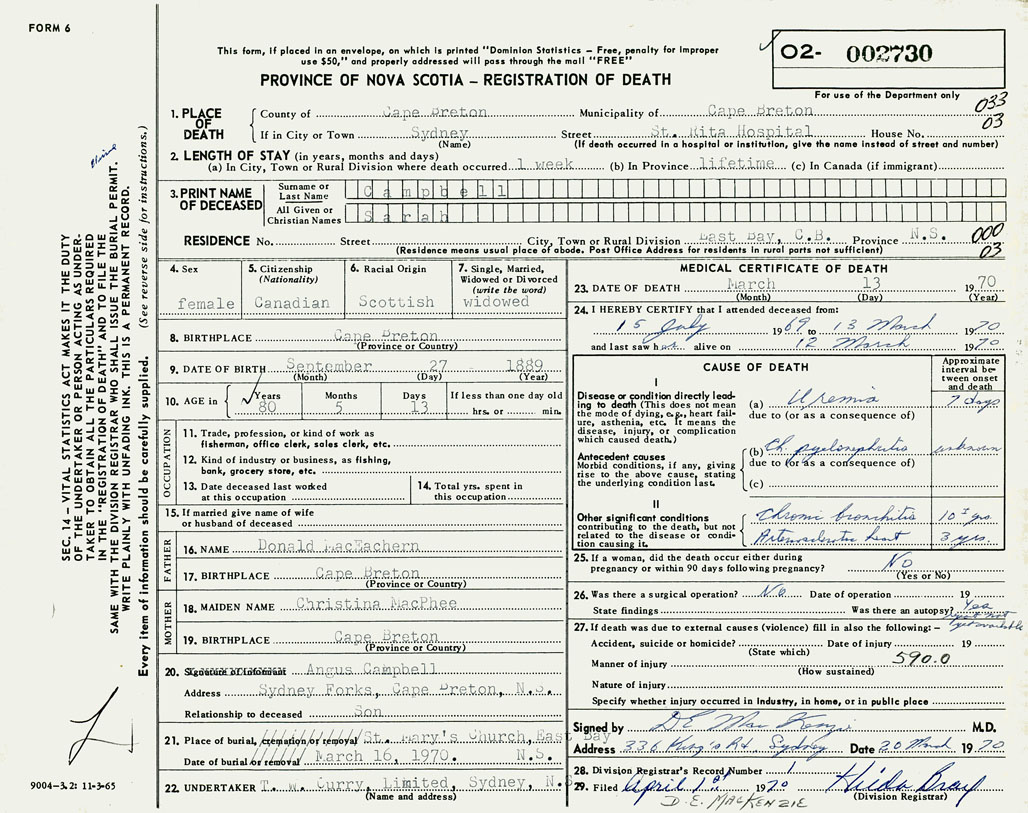 FORM 6
This form, if placed in an envelope, on which is printed "Dominion Statistics – Free, penalty for improper
use $50," and properly addressed will pass through the mail "FREE"
PROVINCE OF NOVA SCOTIA – REGISTRATION OF DEATH
O2- 002730
For use of the Department only
033
03
1. PLACE OF DEATH
County of Cape Breton Municipality of Cape Breton
If in City or Town Sydney Street St. Rita Hospital House No.
(Name) (If death occurred in a hospital or institution, give the name instead of street and number)
2. LENGTH OF STAY (in years, months and days)
(a) In City, Town or Rural Division where death occurred 1 week (b) In Province lifetime (c) In Canada (if immigrant)
3. PRINT NAME OF DECEASED
Surname or Last Name Campbell
All Given or Christian Names Sarah
RESIDENCE No. Street City, Town or Rural Division East Bay, C.B. Province N.S.
(Residence means usual place of abode. Post Office Address for residents in rural parts not sufficient)
000
03
4. Sex
female
5. Citizenship
(Nationality)
Canadian
6. Racial Origin
Scottish
7. Single, Married,
Widowed or Divorced
(write the word)
widowed
8. BIRTHPLACE Cape Breton
(Province or Country)
9. DATE OF BIRTH September 27 1889
(Month) (Day) (Year)
10. AGE in
Years Months Days If less than one day old
80 5 13 hrs. or min.
OCCUPATION
11. Trade, profession, or kind of work as
fisherman, office clerk, sales clerk, etc.
12. Kind of industry or business, as fishing,
bank, grocery store, etc.
13. Date deceased last worked
at this occupation
14. Total yrs. spent in
this occupation
15. If married give name of wife
or husband of deceased
FATHER
16. NAME Donald MacEachern
17. BIRTHPLACE Cape Breton
(Province or Country)
MOTHER
18. MAIDEN NAME Christina MacPhee
19. BIRTHPLACE Cape Breton
(Province or Country)
20. Signature of Informant Angus Campbell
Address Sydney Forks, Cape Breton, N.S.
Relationship to deceased Son
21. Place of burial, cremation or removal St. Mary's Church, East Bay
Date of burial or removal March 16, 1970. N.S.
22. UNDERTAKER T. W. Curry, Limited, Sydney, N.S.
(Name and address)
MEDICAL CERTIFICATE OF DEATH
23. DATE OF DEATH March 13 1970
(Month) (Day) (Year)
24. I HEREBY CERTIFY that I attended deceased from:
15 July 1969 to 13 March 1970
and last saw her alive on 12 March 1970
CAUSE OF DEATH
Approximate
interval be-
tween onset
and death
I
Disease or condition directly lead-
ing to death (This does not mean
the mode of dying, e.g., heart fail-
ure, asthenia, etc. It means the
disease, injury, or complication
which caused death.)
(a) Uremia 7 days
due to (or as a consequence of)
Antecedent causes
Morbid conditions, if any, giving
rise to the above cause, stating
the underlying condition last.
(b) Ch. pyelonephritis unknown
due to (or as a consequence of)
(c)
II
Other significant conditions
contributing to the death, but not
related to the disease or condi-
tion causing it.
Chronic bronchitis 10 yrs
Arteriosclerotic heart 3 yrs.
25. If a woman, did the death occur either during
pregnancy or within 90 days following pregnancy? NO
(Yes or No)
26. Was there a surgical operation? No Date of operation 19
State findings Was there an autopsy? Yes
27. If death was due to external causes (violence) fill in also the following: –
Accident, suicide or homicide? Date of injury 19
(State which)
Manner of injury 590.0
(How sustained)
Nature of injury
Specify whether injury occurred in Industry, in home, or in public place
Signed by D E MacKenzie M.D.
Address 336 King's Rd Sydney Date 20 March 1970
28. Division Registrar's Record Number 1
29. Filed April 1st 1970 Hilda Bray
(Division Registrar)
D. E. MACKENZIE
SEC. 14 – VITAL STATISTICS ACT MAKES IT THE DUTY
OF THE UNDERTAKER OR PERSON ACTING AS UNDER-
TAKER TO OBTAIN ALL THE PARTICULARS REQUIRED
IN THE "REGISTRATION OF DEATH" AND TO FILE THE
SAME WITH THE DIVISION REGISTRAR WHO SHALL ISSUE THE BURIAL PERMIT.
WRITE PLAINLY WITH UNFADING INK. THIS IS A PERMANENT RECORD.
Every item of information should be carefully supplied. (See reverse side for instructions.)
9004–3.2: 11-3-65